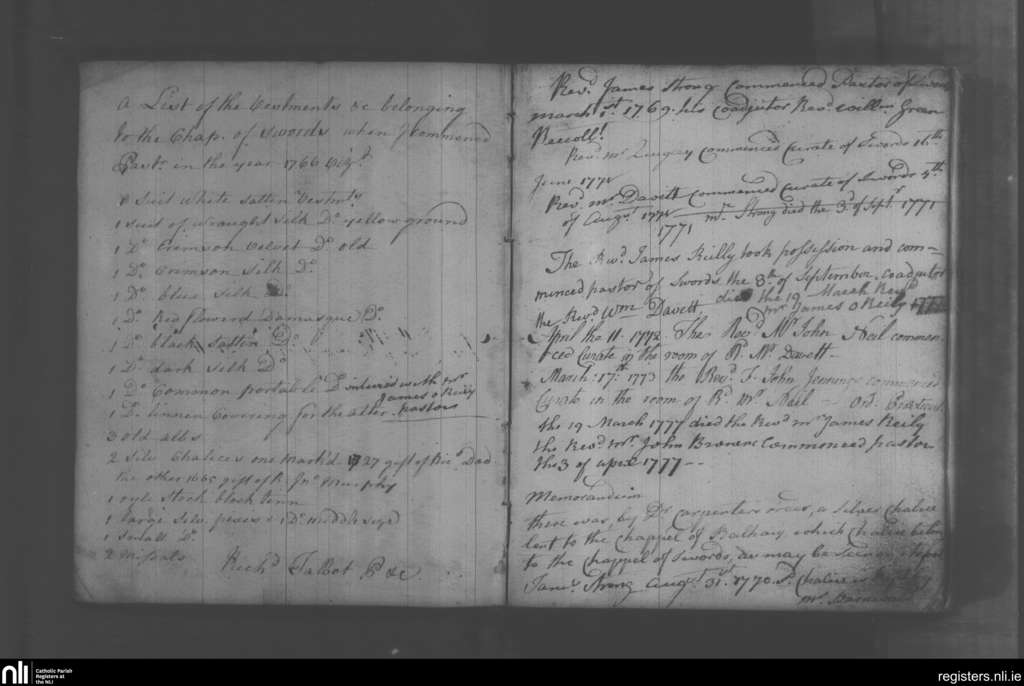 a List of the Vestments &c belonging
to the Chap. of Swords when I commenced
Past.r in the year 1766
Suit White satten Vestmts
1 suit of wraught silk Do. yellow ground
1 Do. Crimson Velvet Do. old
1 Do. Crimson Silk Do.
1 Do. blue Silk Do.
1 Do. Red flowerd Damasque Do.
1 Do. black Satten Do.
1 Do. dark Silk Do.
1 Do. Common portable Do. intured with mr
James o Reily
1 Do. linnen Covering for the alter. pastor
3 old albs
2 Silv. Chalices one mark'd 1727 gift of Revd. Dad
the other 1665 gift of Jno. Murphy
1 oyle Stock block tinn
1 large Silv. pixes 1 Do. middle sized
1 Small Do.
2 Missals
Richd. Talbot P. &c
Revd. James Strong Commenced Pastor of Swords
March 1st. 1769. his Coadjutor Revd. Willm. Green
Revd. Mr. Commenced Curate of Swords 16th
June 1772
Revd. Mr. Davett Commenced Curate of Swords 4th
of Augst. 1772 Mr. Strong died the 3d. of Sept. 1771
1771
The Revd. James Reilly took possession and com-
minced pastor of Swords the 8th. of September. Coadjutor
the Revd. Wm. Davett died the 19 March Revd.
Mr. James o Reily 1777
April the 11. 1772 The Revd. Mr. John Neil commen
ced Curate in the room of R. Mr. Davett-
March. 17th. 1773 the Revd. F. John Jennings commenced
Curate in the room of Rd. Mr. Neil - Ord.
the 19 March 1777 died the Revd. Mr. James Reily
the Revd. Mr. John Commenced pastor
the 3 of april 1777 --
Memorandum
there was, by Dr. Carpenters order, a Silver Chalice
lent to the Chappel of Balheary, which Chalice belong
to the Chappel of Swords, as may be seen
James Strong Augst. 31st. 1770. Chalice
Mr.
nli
Catholic Parish
Registers at
the NLI
registers.nli.ie